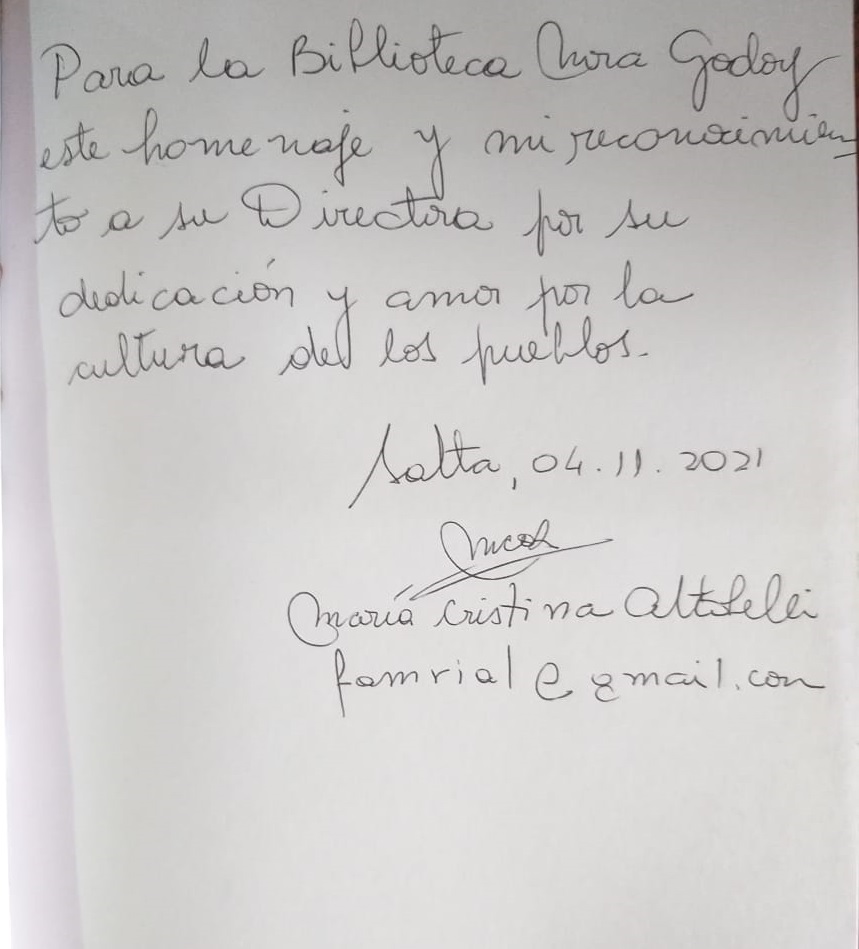 Para la Biblioteca Godoy
este homenaje y mi reconocimien
to a su Directora por su
dedicación y amor por la
cultura de los pueblos.
Salta, 04.11.2021
María Cristina Altobelli
famrial@gmail.com